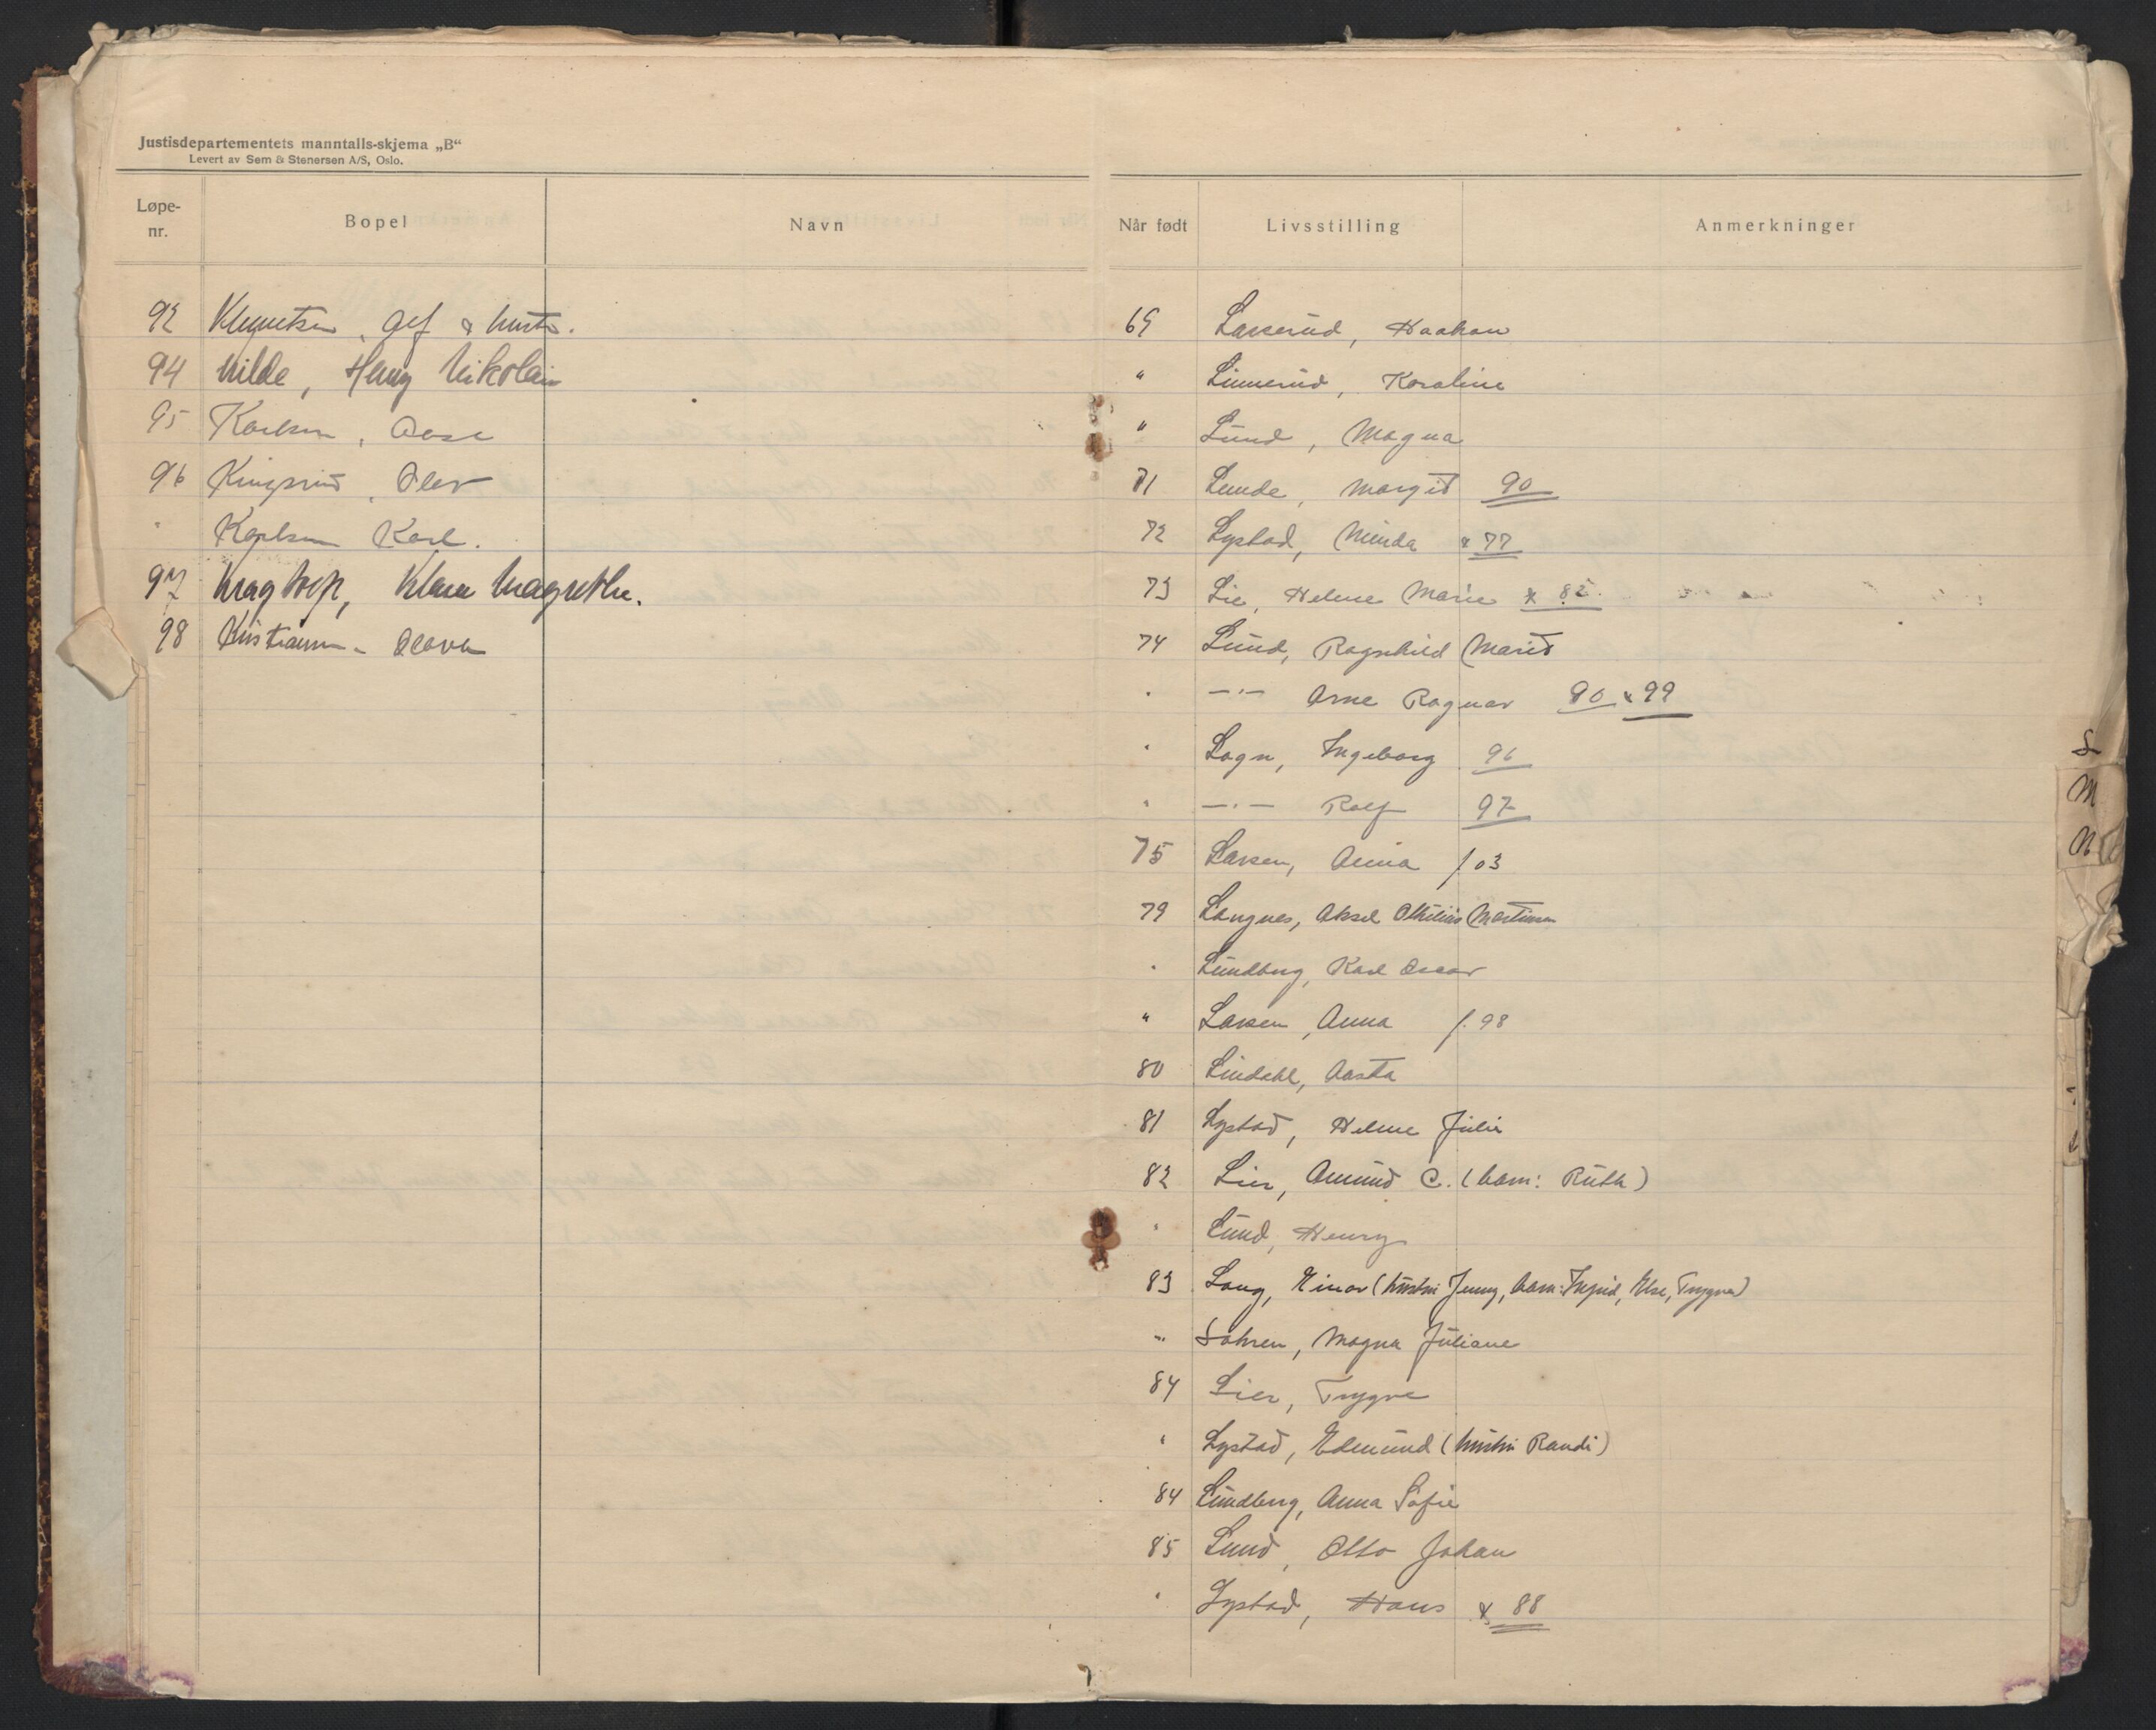 Justisdepartementets manntalls-skjema „B“
Levert av Sem & Stenersen A/S, Oslo.
Løpe-nr. Bopel Navn
92 Knutsen, &
94 Milde, Henry Nikolai
95 Karlsen, Aase
96 Kingsrud, Olav
" Karlsen Karl.
97 Kragtorp, Klara Magrethe.
98 Kristiansen Olava
Når født Livsstilling Anmerkninger
69 Larserud, Haakon
" Linnerud, Karoline
" Lund, Magna
71 Lunde, Margit 90
72 Lystad, Minda & 77
73 Lie, Helene Marie & 82.
74 Lund, Ragnhild Marit
" —"— Arne Ragnar 90 & 99
" Logn, Ingeborg 96
" —"— Rolf 97
75 Larsen, Anna f 03
79 Langnes, Aksel Othilius Martinsen
" Lundberg, Karl Oscar
" Larsen, Anna f. 98
80 Lindahl, Aasta
81 Lystad, Helene Julie
82 Lier, Amund C. (barn: Ruth)
" Lund, Henry
83 Lang, Einar (hustru Jenny, barn: Ingrid, Else, Trygve)
" Lohren, Magna Juliane
84 Lier, Trygve
" Lystad, Edmund (hustru Randi)
84 Lundberg, Anna Sofie
85 Lund, Otto Johan
" Lystad, Hans & 88
S
M
N